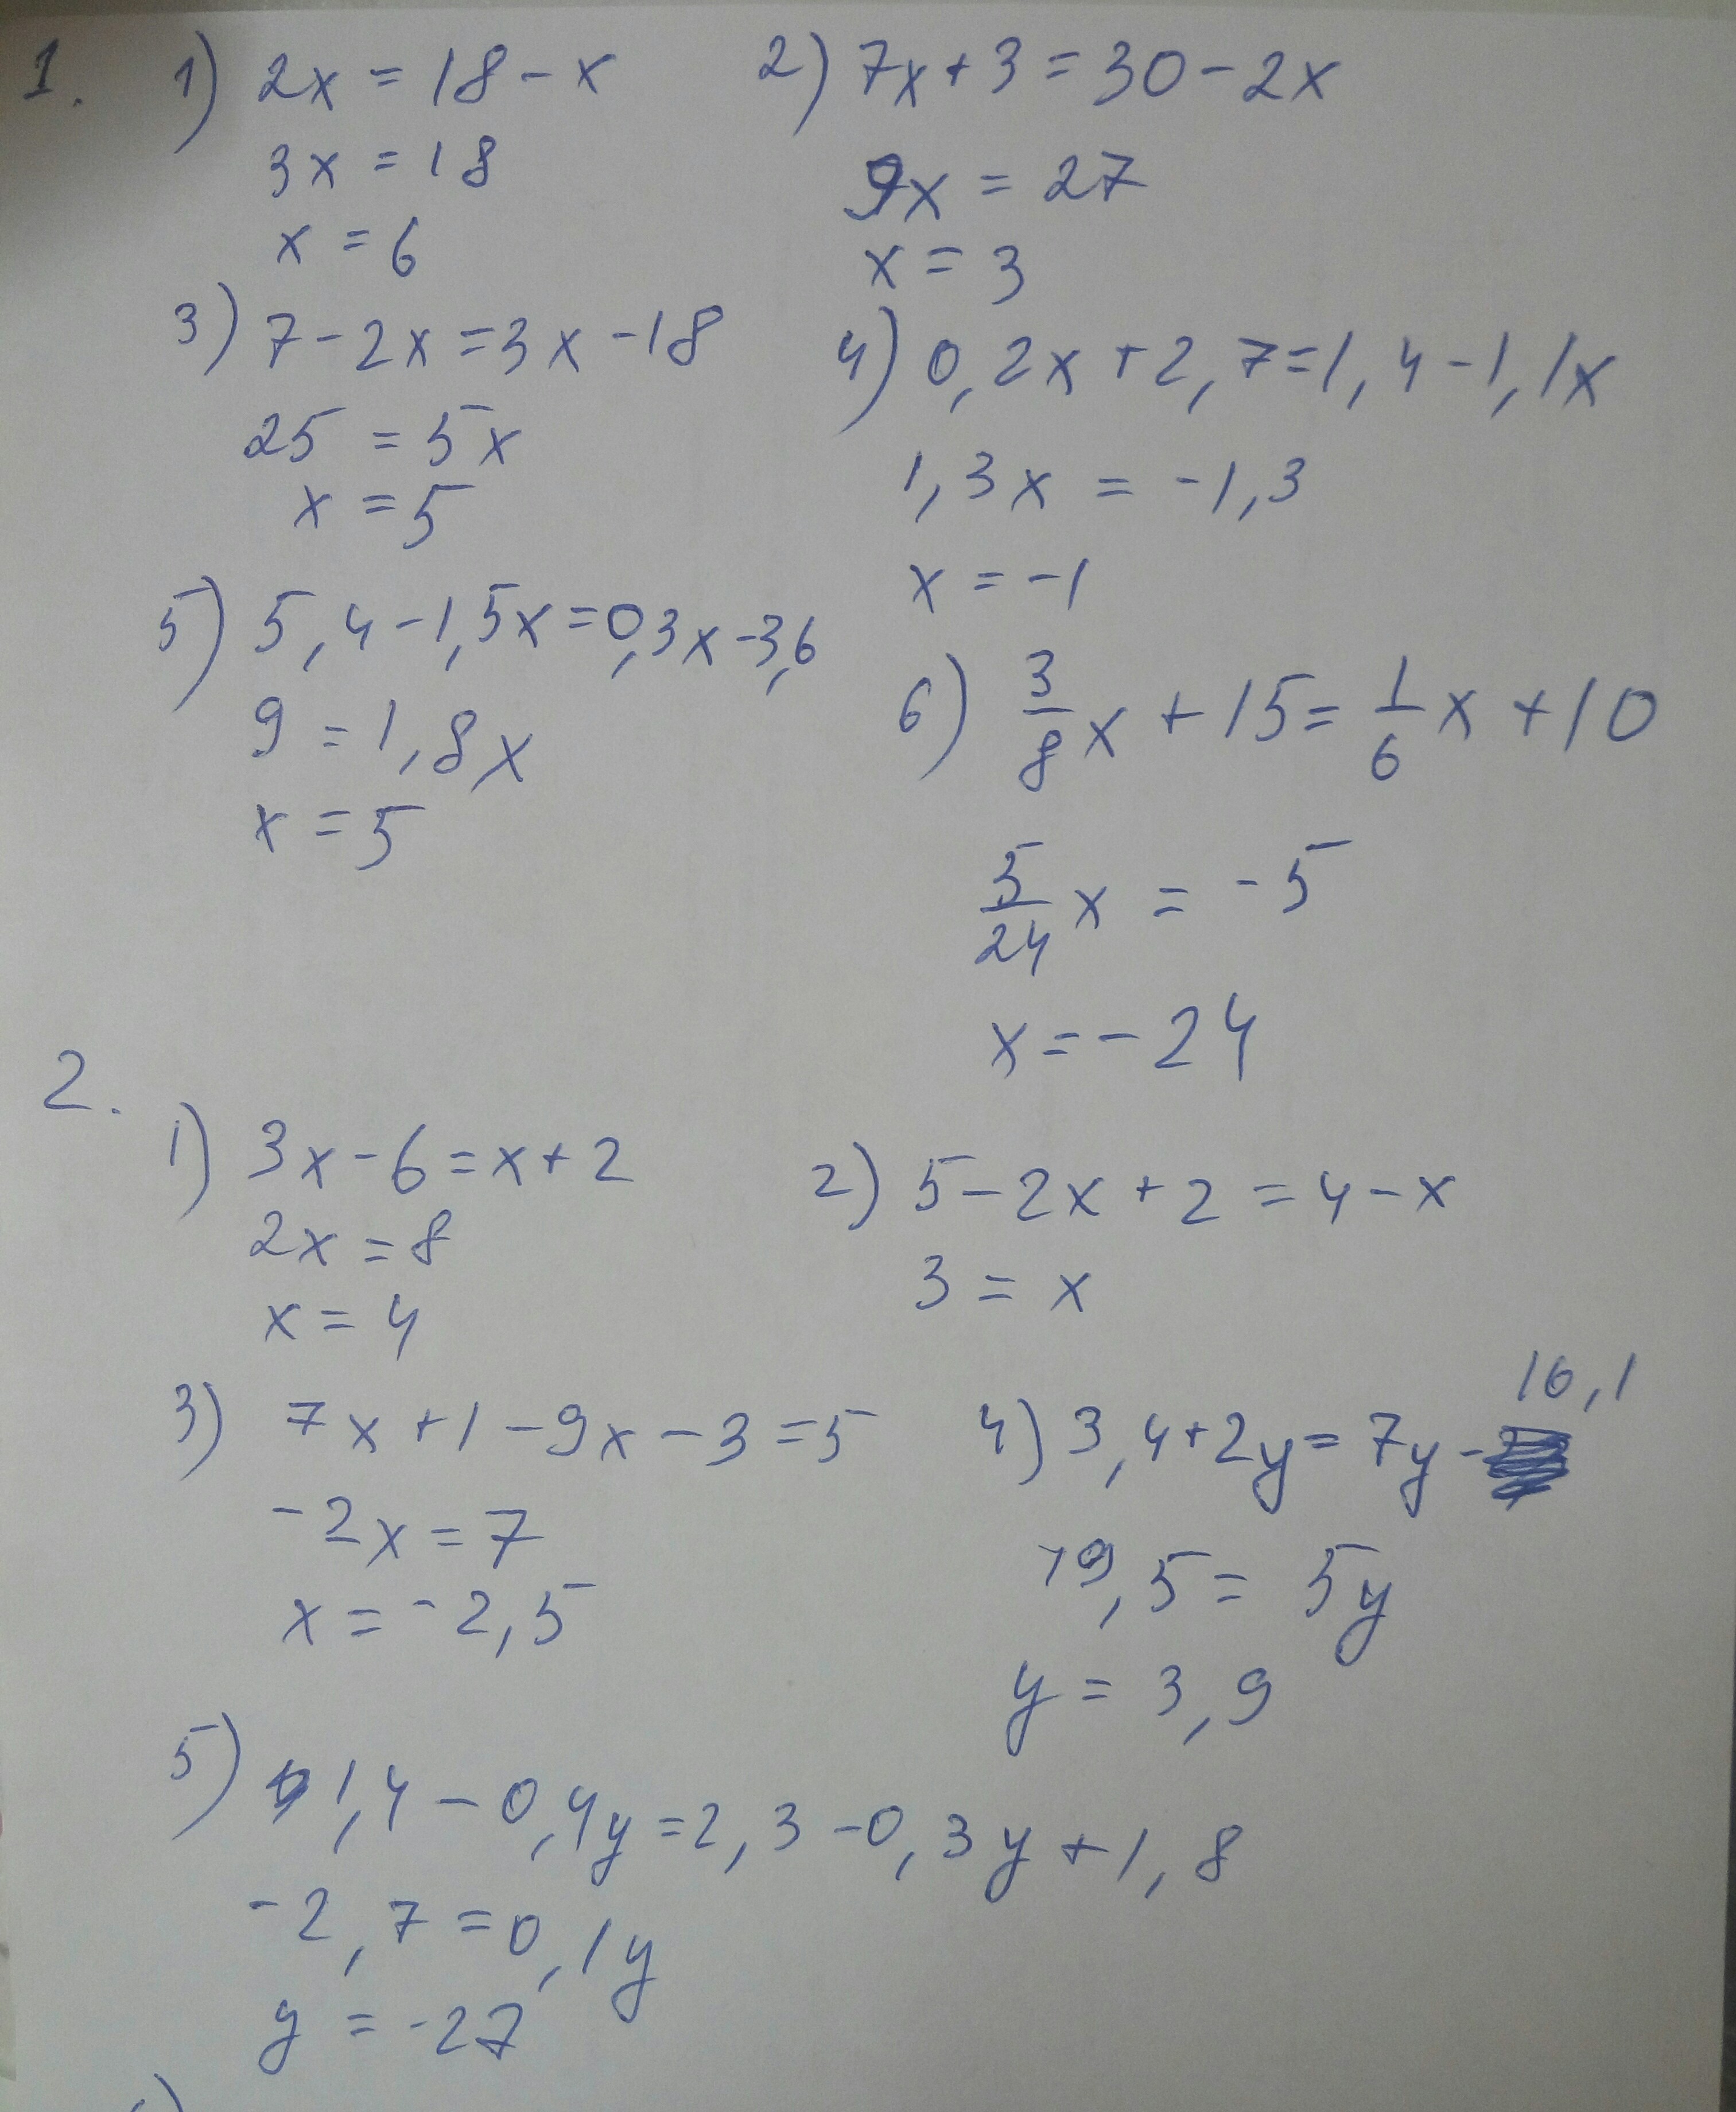 1. 1) 2x = 18 - x
3x = 18
x = 6
2) 7x + 3 = 30 - 2x
9x = 27
x = 3
3) 7 - 2x = 3x - 18
25 = 5x
x = 5
4) 0,2x + 2,7 = 1,4 - 1,1x
1,3x = -1,3
x = -1
5) 5,4 - 1,5x = 0,3x - 3,6
9 = 1,8x
x = 5
6) 3/8 x + 15 = 1/6 x + 10
5/24 x = -5
x = -24
2.
1) 3x - 6 = x + 2
2x = 8
x = 4
2) 5 - 2x + 2 = 4 - x
3 = x
3) 7x + 1 - 9x - 3 = 5
-2x = 7
x = -2,5
4) 3,4 + 2y = 7y - 16,1
19,5 = 5y
y = 3,9
5) 1,4 - 0,4y = 2,3 - 0,3y + 1,8
-2,7 = 0,1y
y = -27